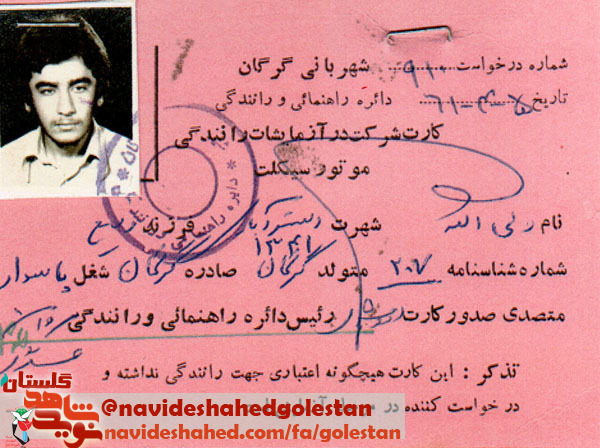 شماره درخواست ۹۱۰ شهربانی گرگان
تاریخ ۵-۴-۶۱ دائره راهنمائی و رانندگی
کارت شرکت در آزمایشات رانندگی
موتور سیکلت
نام ولی الله شهرت فرزند
شماره شناسنامه ۲۰۷ متولد ۱۳۴۱ گرگان صادره گرگان شغل پاسدار
متصدی صدور کارت رئیس دائره راهنمائی و رانندگی
تذکر : این کارت هیچگونه اعتباری جهت رانندگی نداشته و
درخواست کننده در
دایره راهنمائی
نوید شاهد گلستان
@navideshahedgolestan
navideshahed.com/fa/golestan